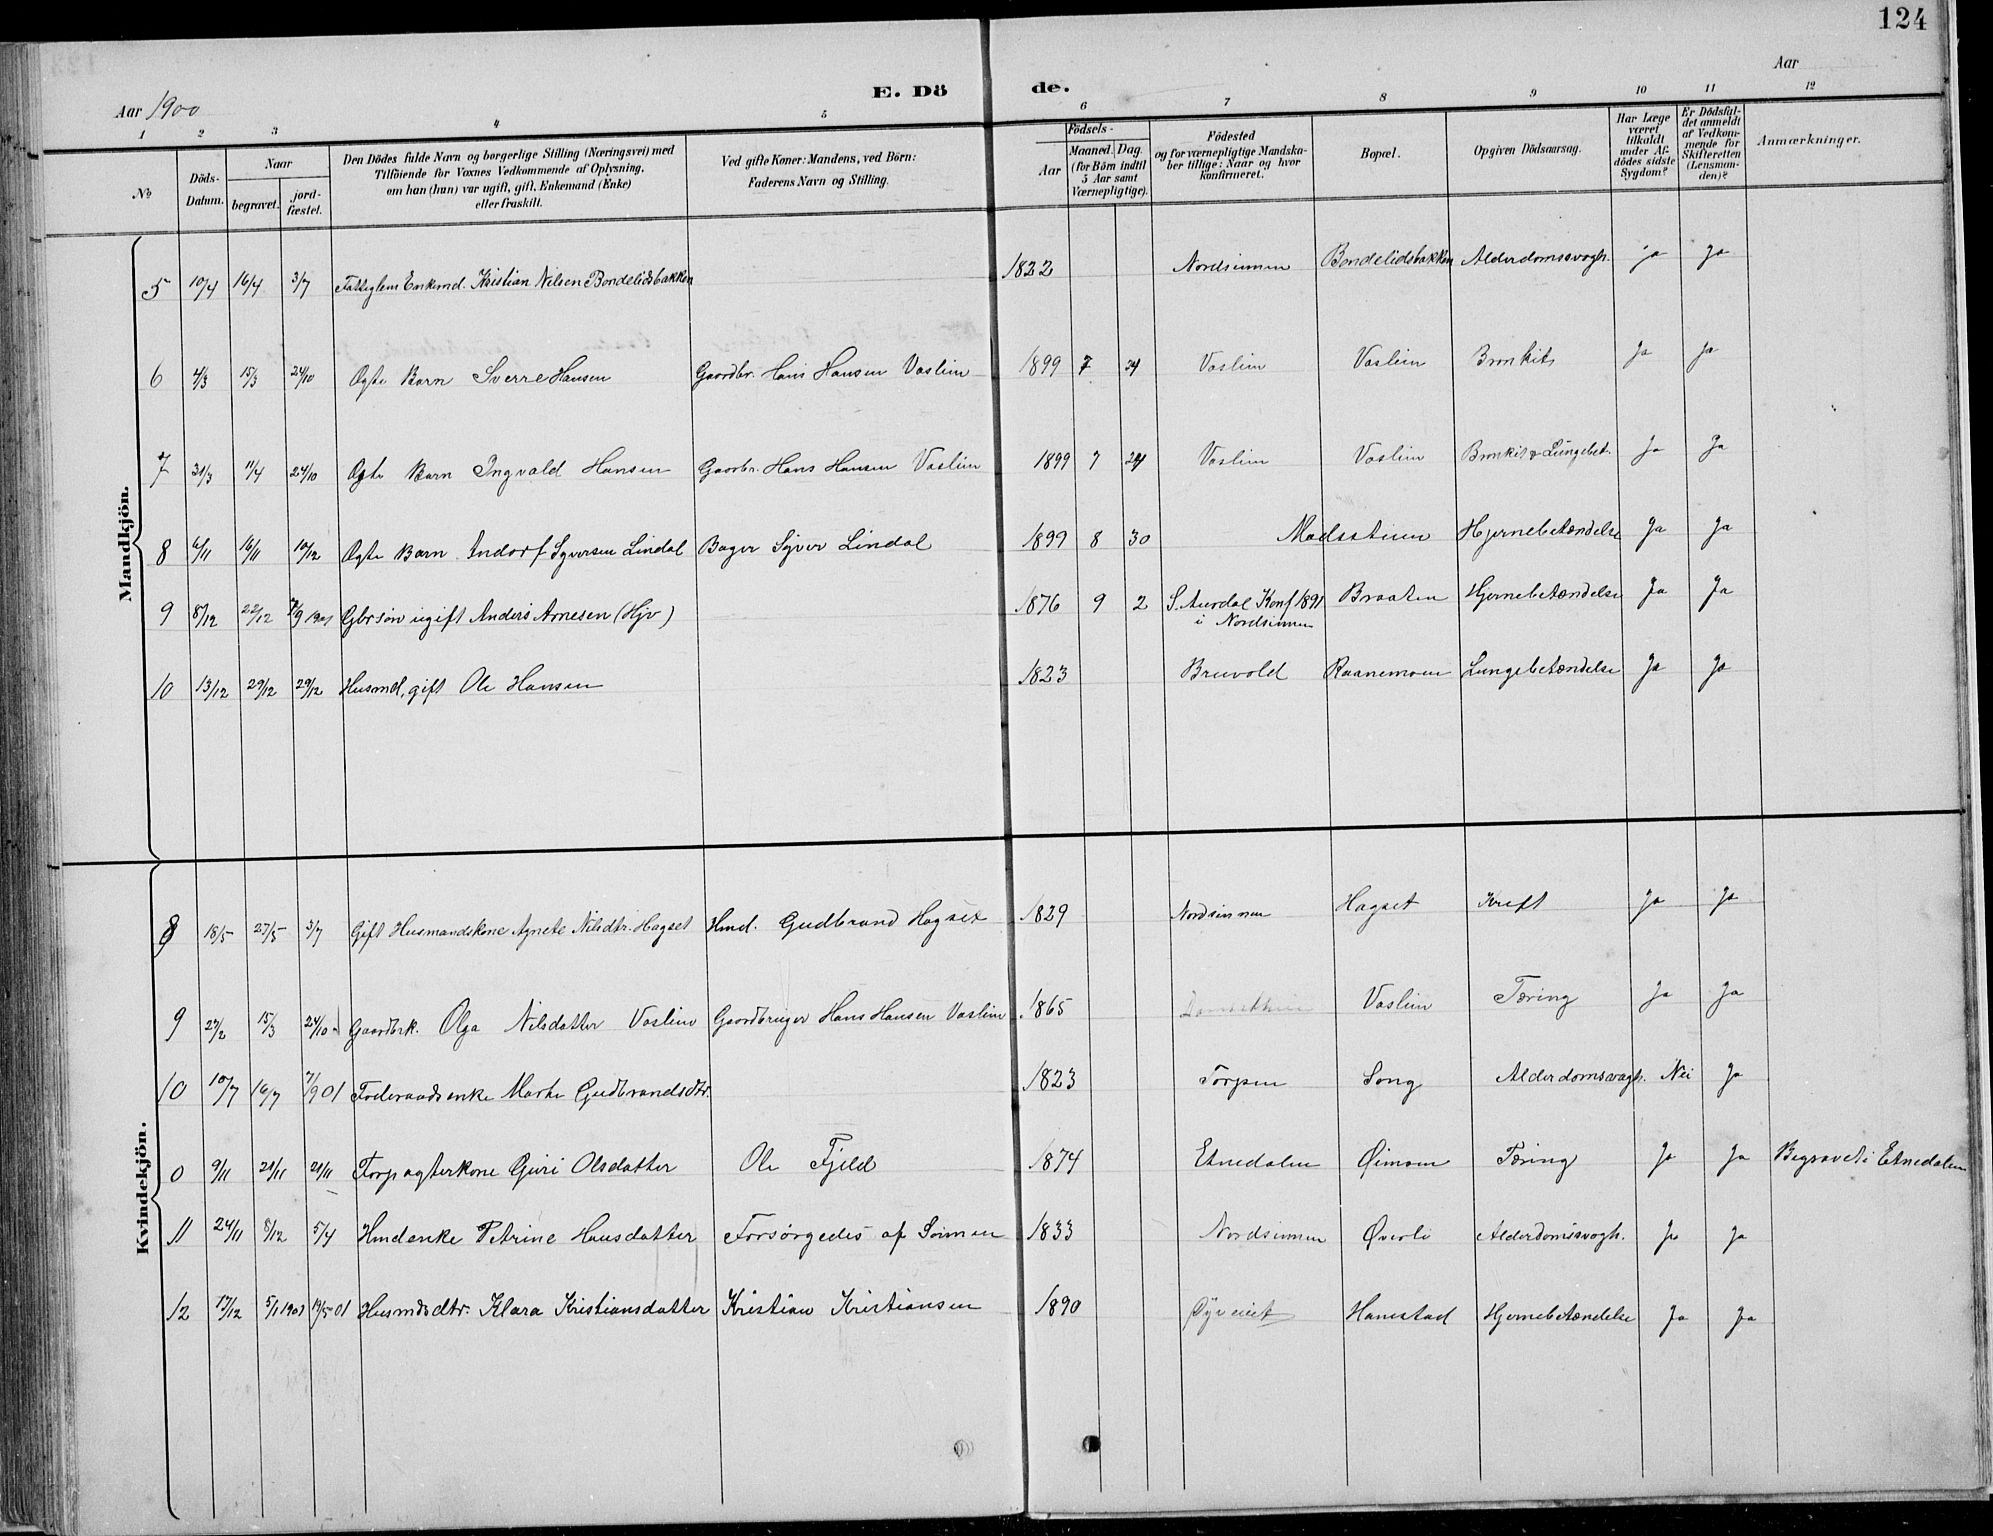 124
Aar 1900
E. Dö de.
Aar
1 2 3 4 5 6 7 8 9 10 11 12
No.
Döds-Datum.
Naar
begravet.
jord-fæstet.
Den Dödes fulde Navn og borgerlige Stilling (Næringsvei) med
Tilföiende for Voxnes Vedkommende af Oplysning,
om han (hun) var ugift, gift, Enkemand (Enke)
eller fraskilt.
Ved gifte Koner: Mandens, ved Börn:
Faderens Navn og Stilling.
Födsels-
Aar
Maaned. Dag.
(for Börn indtil
5 Aar samt
Værnepligtige).
Födested
og for værnepligtige Mandska-
ber tillige: Naar og hvor
konfirmeret.
Bopæl.
Opgiven Dödsaarsag.
Har Læge
været
tilkaldt
under Af-
dödes sidste
Sygdom?
Er Dödsfal-
det anmeldt
af Vedkom-
mende for
Skifteretten
(Lensman-
den)?
Anmærkninger.
Mandkjön.
5 10/4 16/4 3/7 Fattiglem Enkemd. Kristian Nilsen Bondelidsbakken 1822 Nordsinnen Bondelidsbakken Alderdomssvagh. ja ja
6 4/3 15/3 24/10 Ægte Barn Sverre Hansen Gaardbr. Hans Hansen Vaslien 1899 7 24 Vaslien Vaslien Bronkit Ja ja
7 31/3 11/4 24/10 Ægte Barn Ingvald Hansen Gaardbr. Hans Hansen Vaslien 1899 7 24 Vaslien Vaslien Bronkit & Lungebet. Ja Ja
8 6/11 16/11 10/12 Ægte Barn Andorf Syversen Lindal Bager Syver Lindal 1899 8 30 Madsstuen Hjernebetændelse Ja Ja
9 8/12 22/12 7/9 1901 Gbrsøn ugift Anders Arnesen (Hjv) 1876 9 2 S. Aurdal Konf 1891
i Nordsinnen Braaten Hjernebetændelse Ja Ja
10 13/12 29/12 29/12 Husmd, gift Ole Hansen 1823 Bruvold Raanemoen Lungebetændelse Ja Ja
Kvindekjön.
8 18/5 27/5 3/7 Gift Husmandskone Agnete Nilsdtr. Hagset Hmd. Gudbrand Hagset 1829 Nordsinnen Hagset Kreft Ja Ja
9 27/2 15/3 24/10 Gaardbrk. Olga Nilsdatter Vaslien Gaardbruger Hans Hansen Vaslien 1865 Vaslien Tæring Ja Ja
10 10/7 16/7 7/9 01 Føderaadsenke Marte Gudbrandsdtr. 1823 Torpen Song Alderdomsvagh. Nei Ja
0 9/11 21/11 21/11 Forpagterkone Guri Olsdatter Ole Fjeld 1874 Etnedalen Øimoen Tæring Ja Ja Begravet i Etnedalen
11 24/11 8/12 5/4 Hmdenke Petrine Hansdatter Forsørgedes af Sønnen 1833 Nordsinnen Øverli Alderdomssvagh. Ja Ja
12 17/12 5/1 1901 19/5 01 Husmdsdtr. Klara Kristiansdatter Kristian Kristiansen 1890 Hanestad Hjernebetændelse Ja Ja